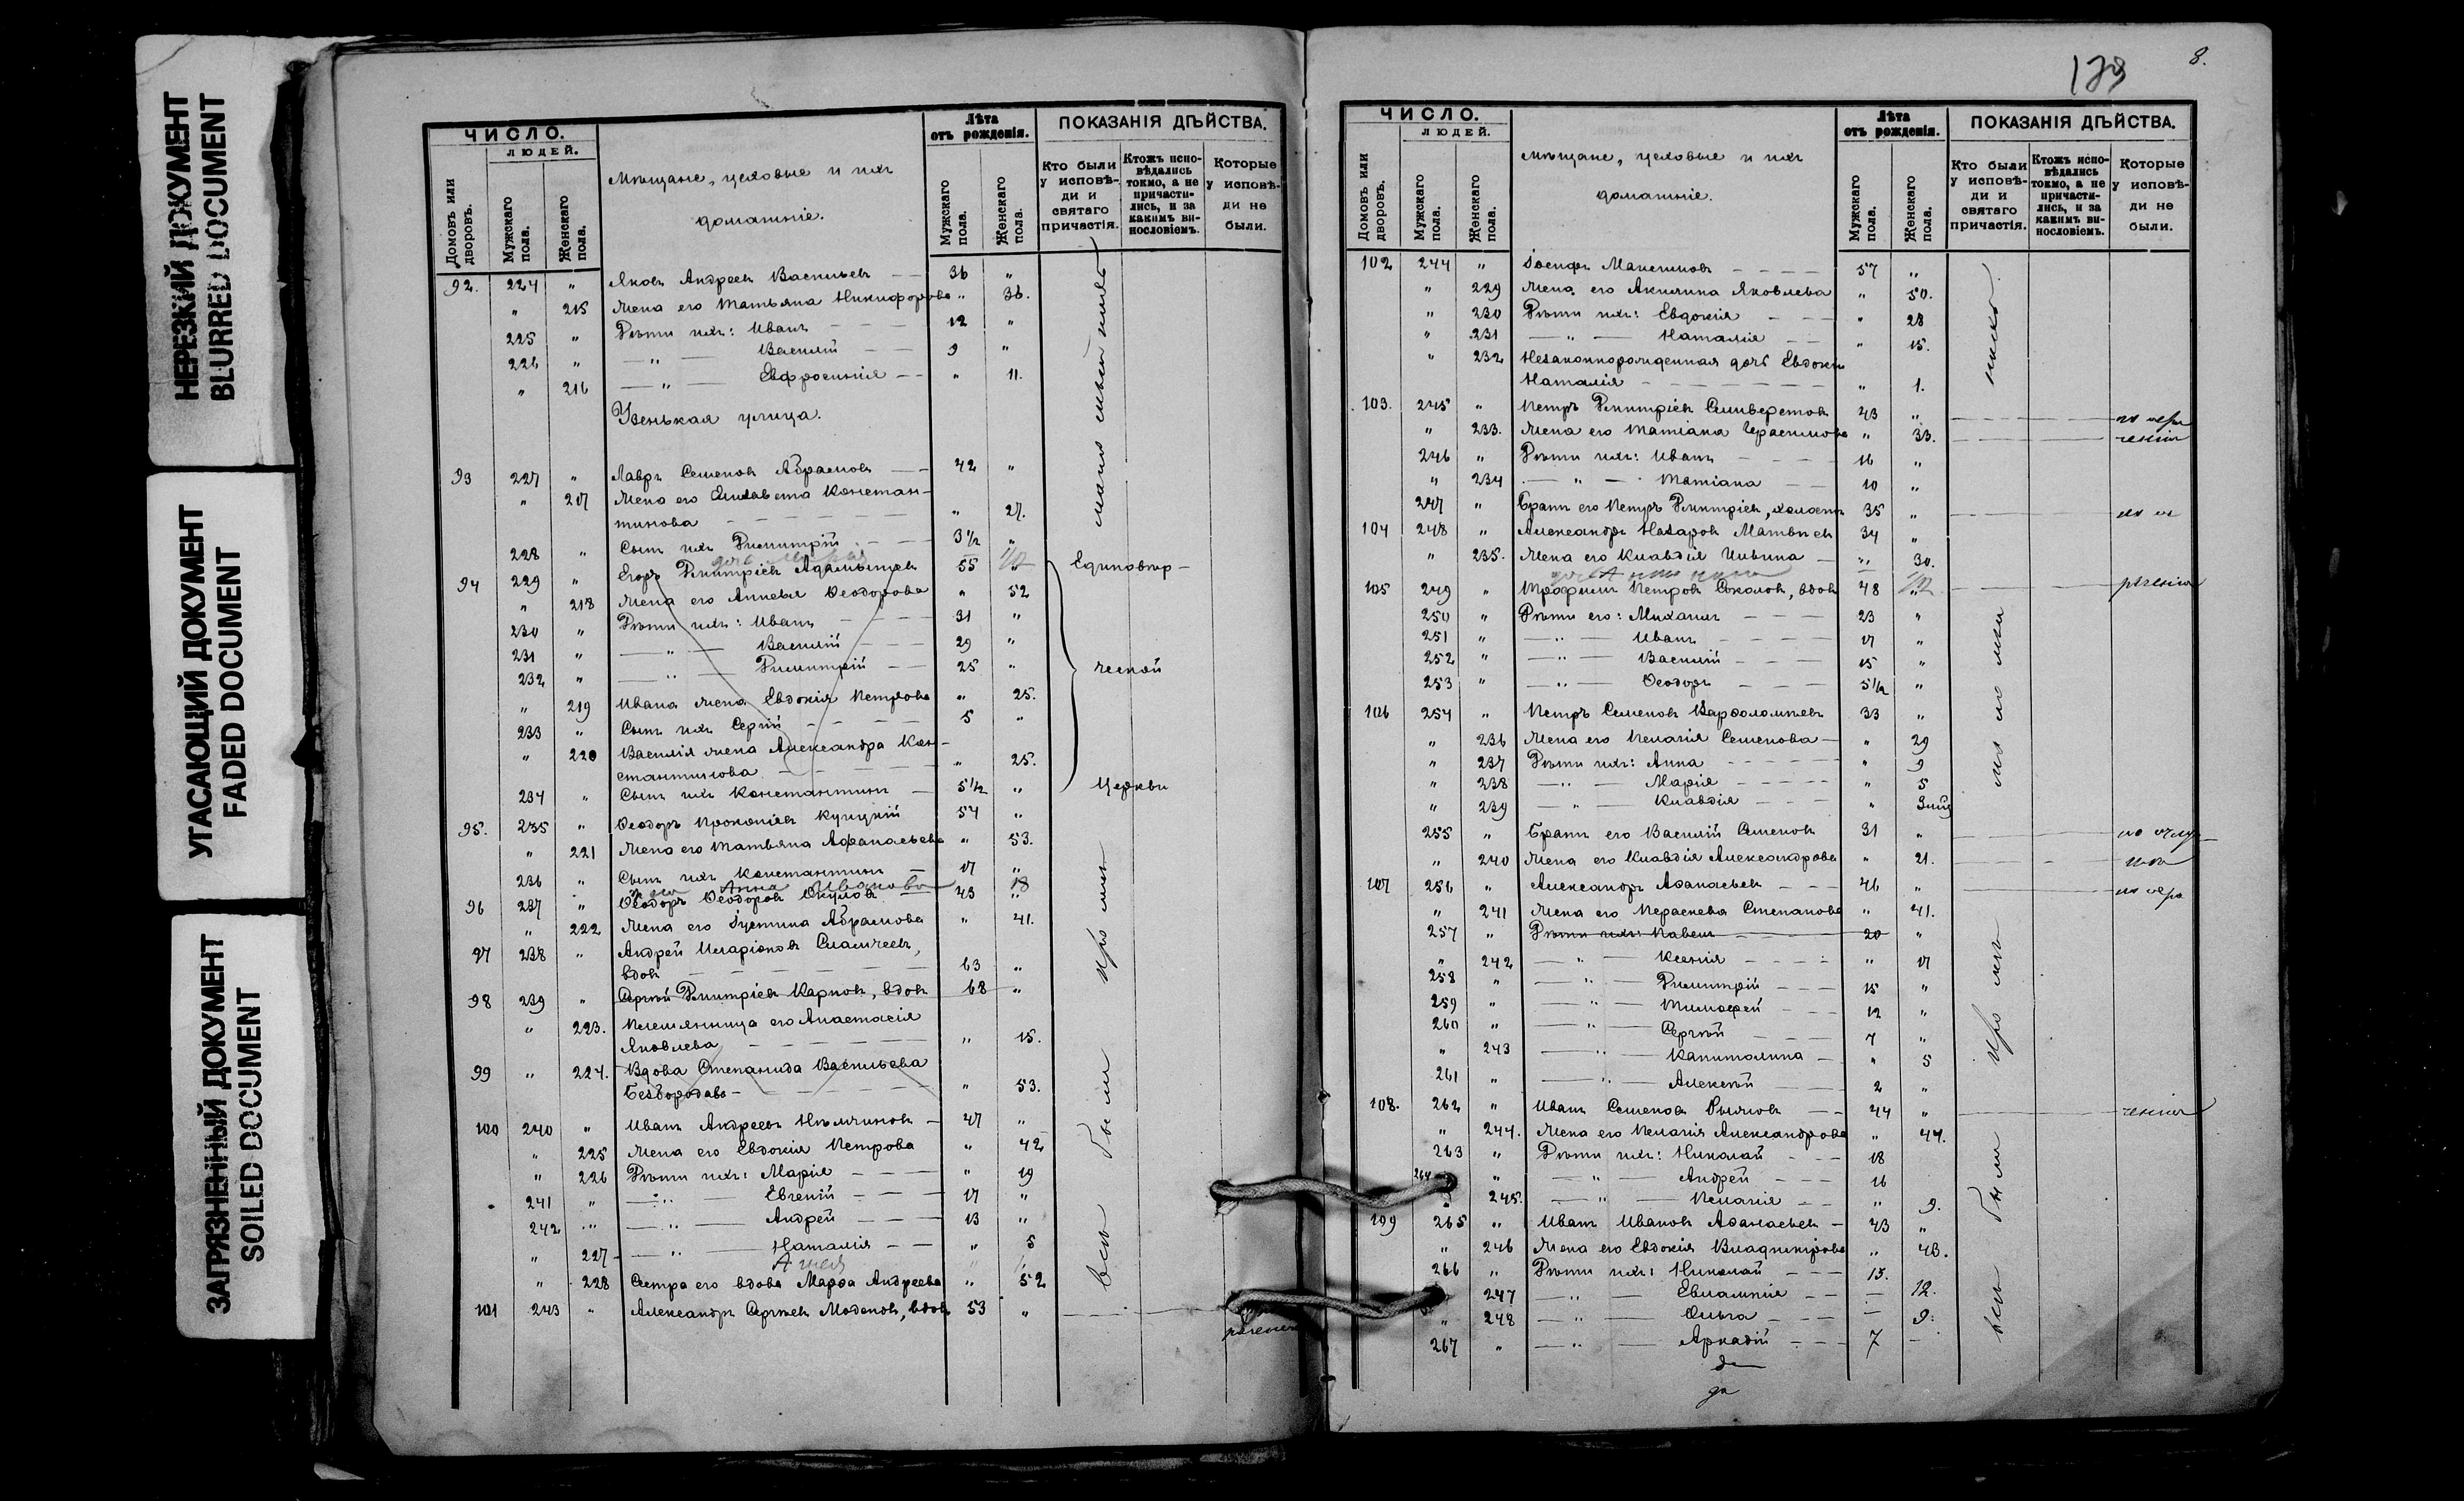 НЕРЕЗКИЙ ДОКУМЕНТ
BLURRED DOCUMENT
УГАСАЮЩИЙ ДОКУМЕНТ
FADED DOCUMENT
ЗАГРЯЗНЕННЫЙ ДОКУМЕНТ
SOILED DOCUMENT
ЧИСЛО.
ЛЮДЕЙ.
Домовъ или дворовъ.
Мужскаго пола.
Женскаго пола.
Мѣщане, цеховые и ихъ
домашніе.
Лѣта
отъ рожденія.
Мужскаго пола.
Женскаго пола.
ПОКАЗАНІЯ ДѢЙСТВА.
Кто были у исповѣди и святаго причастія.
Ктожъ исповѣдались токмо, а не причастились, и за какимъ винословіемъ.
Которые у исповѣди не были.
92. 224 " Яковъ Андреевъ Васильевъ — 36 "
" 215 Жена его Татьяна Никифорова " 36.
225 " Дѣти ихъ: Иванъ — 12 "
226 " — " — Василій — 9 "
" 216 — " — Евфросинія — " 11.
Узенькая улица.
93 227 " Лавръ Семеновъ Абрамовъ — 42 "
" 217 Жена его Елисавета Констан-
тинова — " 27.
228 " Сынъ ихъ Димитрій — 3½ "
94 229 " Егоръ Димитріевъ 55 "
" 218 Жена его Ѳеодорова " 52
230 " Дѣти ихъ: Иванъ — 31 "
231 " — " — Василій — 29 "
232 " — " — Димитрій — 25 "
" 219 Ивана жена Евдокія Петрова " 25.
233 " Сынъ ихъ Сергій — 5 "
" 220 Василія жена Александра Кон-
стантинова — " 25.
234 " Сынъ ихъ Константинъ — 5½ "
Единовѣр-
ческой
Церкви
95. 235 " Ѳеодоръ Прокопіевъ Куницкій 54 "
" 221 Жена его Татьяна Аѳанасьева " 53.
236 " Сынъ ихъ Константинъ — 17 "
Анна Иванова 18
96 237 " Ѳеодоръ Ѳеодоровъ Окуловъ 43 "
" 222 Жена его Іустина Абрамова " 41.
97 238 " Андрей Иларіоновъ
вдовъ — 63 "
98 239 " Сергѣй Димитріевъ Карповъ, вдовъ 68 "
" 223. Племянница его Анастасія
Яковлева — " 15.
99 " 224. Вдова Степанида Васильева
Безбородова — " 53.
100 240 " Иванъ Андреевъ — 47 "
" 225 Жена его Евдокія Петрова " 42
" 226 Дѣти ихъ: Марія — " 19
241 " — " — Евгеній — 17 "
242 " — " — Андрей — 13 "
" 227 — " — Наталія — " 5
" 228 Сестра его вдова Марѳа Андреева " 52
101 243 " Александръ Сергѣевъ Модоновъ, вдовъ 53 "
всѣ были
179
8.
ЧИСЛО.
ЛЮДЕЙ.
Домовъ или дворовъ.
Мужскаго пола.
Женскаго пола.
Мѣщане, цеховые и ихъ
домашніе.
Лѣта
отъ рожденія.
Мужскаго пола.
Женскаго пола.
ПОКАЗАНІЯ ДѢЙСТВА.
Кто были у исповѣди и святаго причастія.
Ктожъ исповѣдались токмо, а не причастились, и за какимъ винословіемъ.
Которые у исповѣди не были.
102 244 " Іосифъ Максимовъ — 57 "
" 229 Жена его Акилина Яковлева " 50.
" 230 Дѣти ихъ: Евдокія — " 28
" 231 — " — Наталія — " 15.
" 232 Незаконнорожденная дочь Евдокіи
Наталія — " 1.
103. 245 " Петръ Димитріевъ Селиверстовъ 43 "
" 233. Жена его Татіана Герасимова " 33.
246 " Дѣти ихъ: Иванъ — 16 "
" 234 — " — Татіана — 10 "
247 " Братъ его Петръ Димитріевъ, холостъ 35 "
104 248 " Александръ Назаровъ Матвѣевъ 34 "
" 235. Жена его Клавдія Ильина — " 30.
105 249 " Трофимъ Петровъ Соколовъ, вдовъ 48 "
250 " Дѣти его: Михаилъ — 23 "
251 " — " — Иванъ — 17 "
252 " — " — Василій — 15 "
253 " — " — Ѳеодоръ — 5½ "
106 254 " Петръ Семеновъ Варѳоломѣевъ 33 "
" 236 Жена его Пелагія Семенова — " 29
" 237 Дѣти ихъ: Анна — " 9
" 238 — " — Марія — " 5
" 239 — " — Клавдія — "
255 " Братъ его Василій Семеновъ 31 "
" 240 Жена его Клавдія Александрова " 21.
107 256 " Александръ Аѳанасьевъ — 46 "
" 241 Жена его Параскева Степанова " 41.
257 " Дѣти ихъ: Павелъ — 20 "
" 242 — " — Ксенія — " 17
258 " — " — Димитрій — 15 "
259 " — " — Тимоѳей — 12 "
260 " — " — Сергѣй — 7 "
" 243 — " — Капитолина — " 5
261 " — " — Алексѣй — 2 "
108. 262 " Иванъ Семеновъ — 44 "
" 244. Жена его Пелагія Александрова " 44.
263 " Дѣти ихъ: Николай — 18
264 " — " — Андрей — 16
245. — " — Пелагія — " 9.
109 265 " Иванъ Ивановъ Аѳанасьевъ — 43 "
" 246 Жена его Евдокія Владимірова " 43.
266 " Дѣти ихъ: Николай — 15.
247 — " — Евлампія — — 12.
" 248 — " — Ольга — — 9.
267 " — " — Аркадій — 7 —
всѣ были